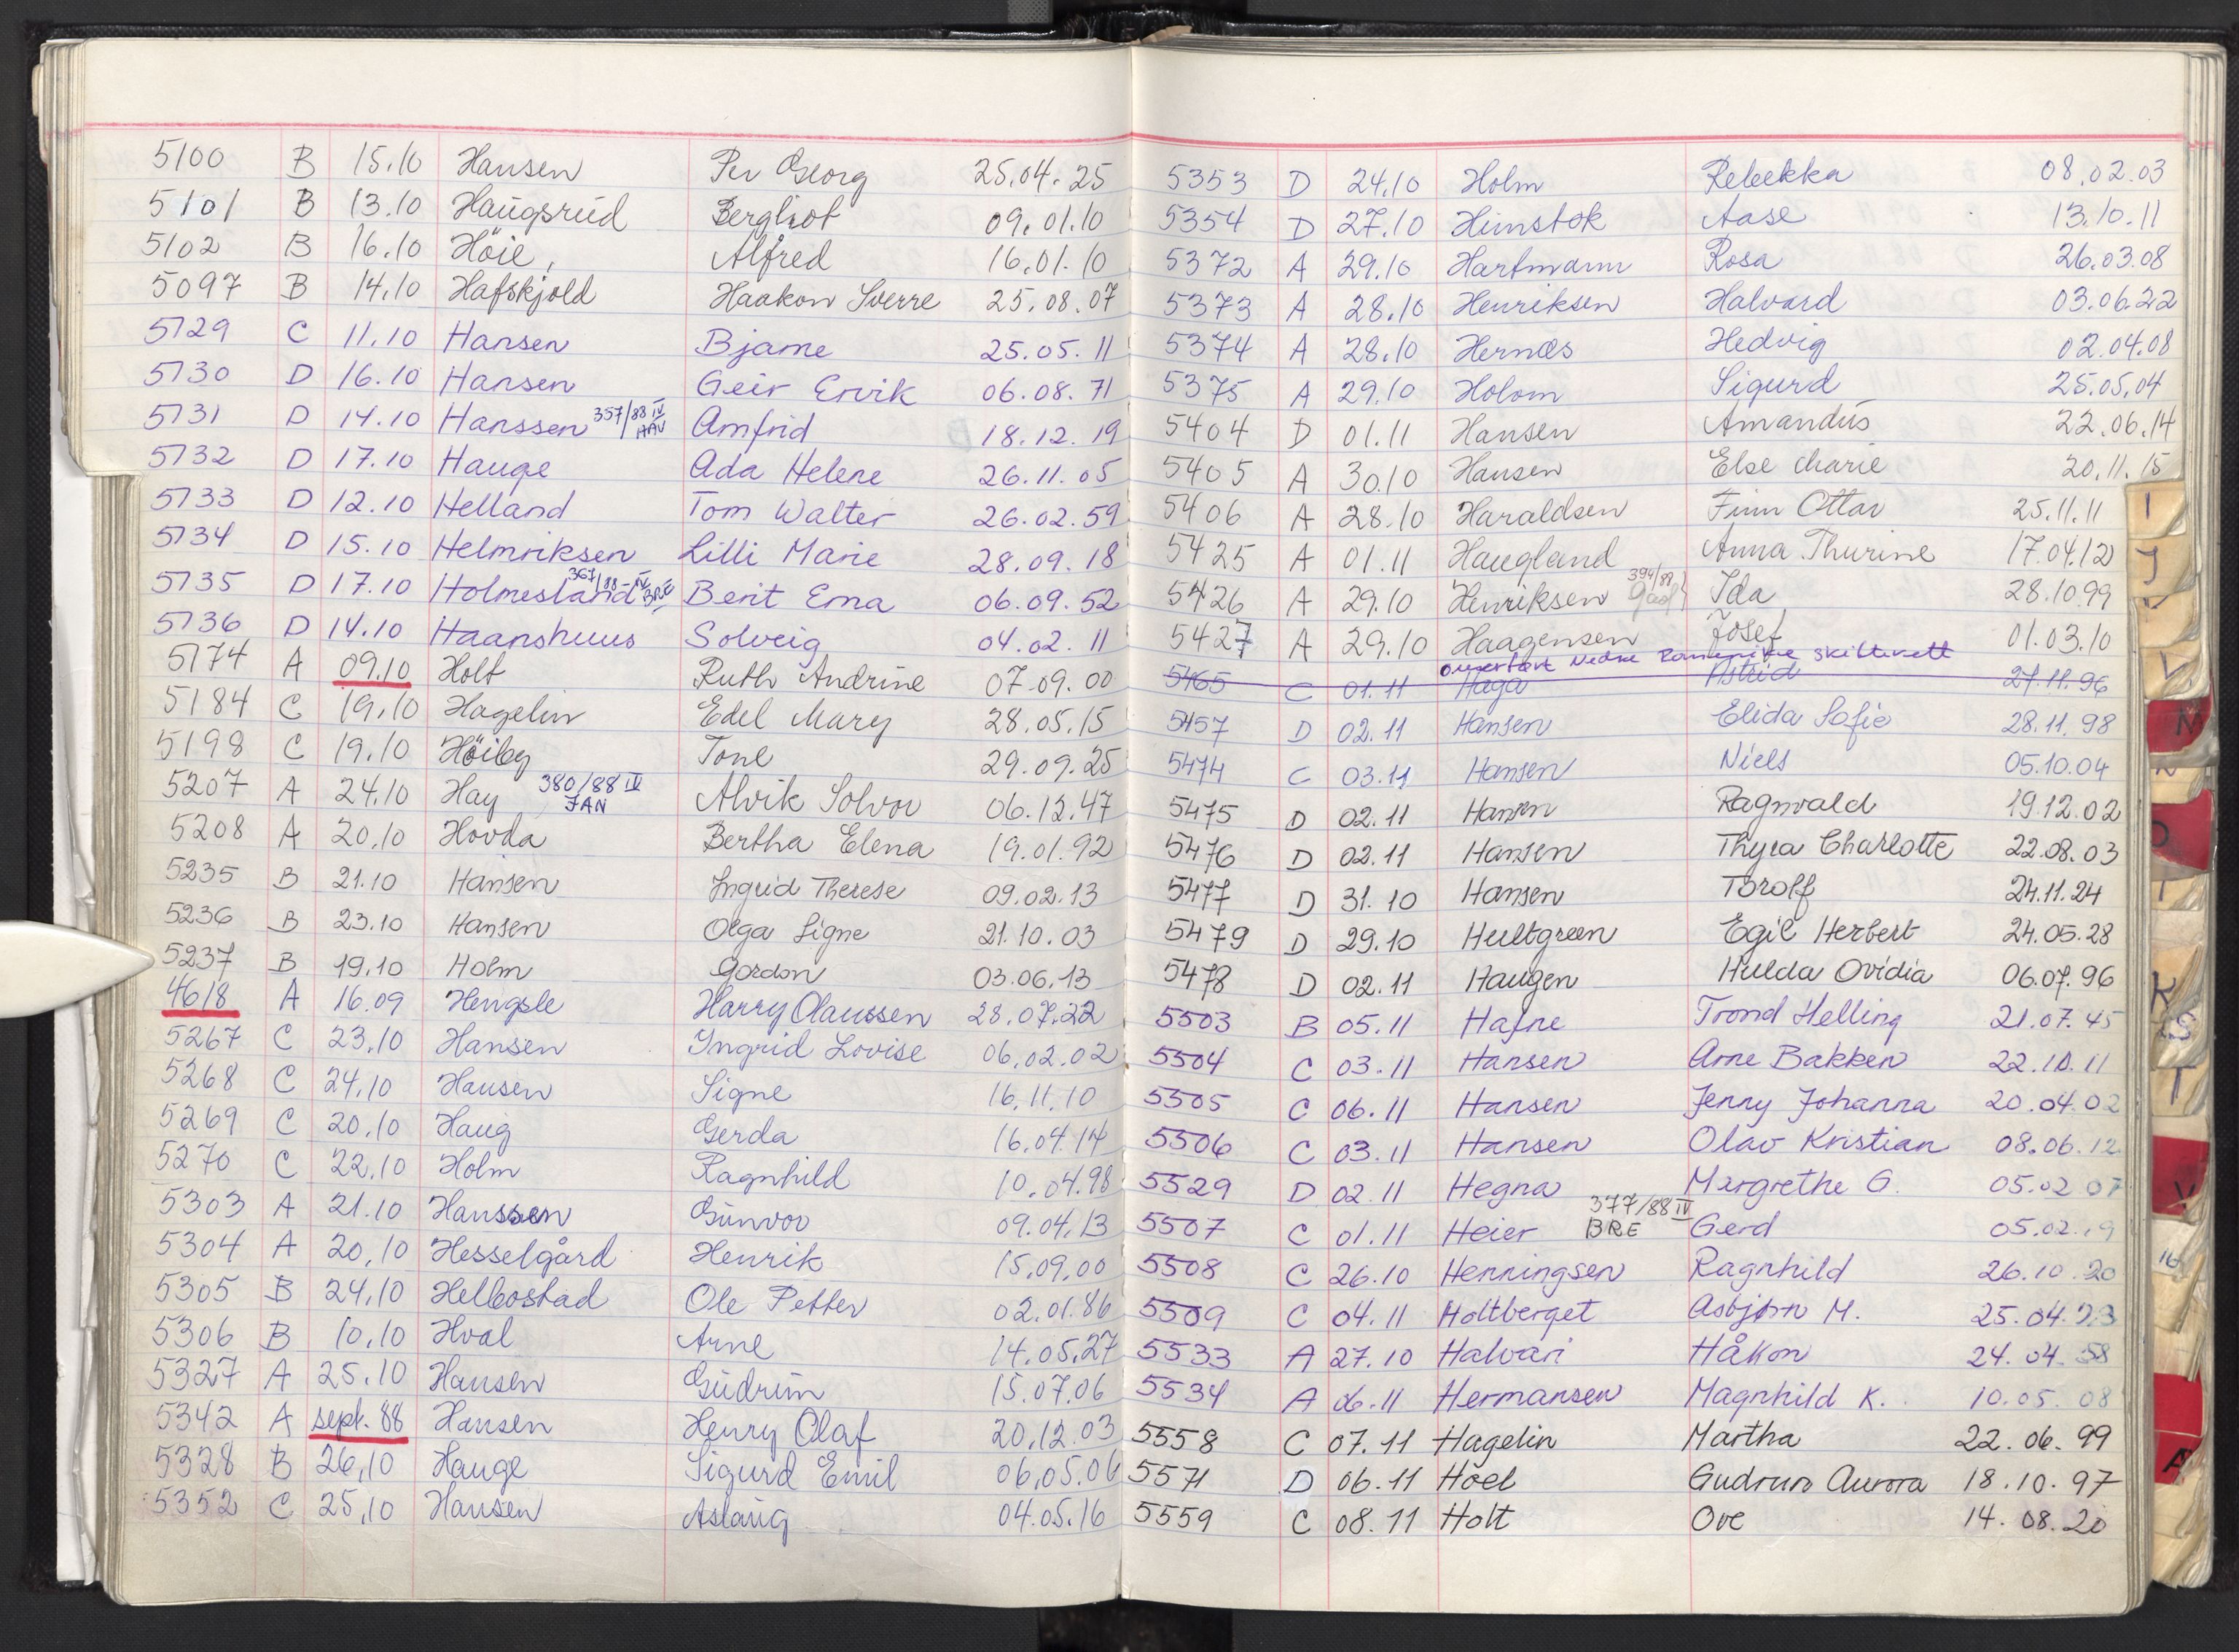 5100 B 15.10 Hansen Per Georg 25.04.25
5101 B 13.10 Haugsrud Bergliot 09.01.10
5102 B 16.10 Höie, Alfred 16.01.10
5097 B 14.10 Hafskjold Haakon Sverre 25.08.07
5129 C 11.10 Hansen Bjarne 25.05.11
5130 D 16.10 Hansen Geir Ervik 06.08.71
5131 D 14.10 Hanssen 357/88 IV HAV Arnfrid 18.12.19
5132 D 17.10 Hauge Ada Helene 26.11.05
5133 D 12.10 Helland Tom Walter 26.02.59
5134 D 15.10 Helmriksen Lilli Marie 28.09.18
5135 D 17.10 Holmesland 367/88-IV BRE Berit Erna 06.09.52
5136 D 14.10 Haanshuus Solveig 04.02.11
5174 A 09.10 Holt Ruth Andrine 07.09.00
5184 C 19.10 Hagelin Edel Mary 28.05.15
5198 C 19.10 Höiby Tone 29.09.25
5207 A 24.10 Hay 380/88 IV JAN Alvik Solvor 06.12.47
5208 A 20.10 Hovda Bertha Elena 19.01.92
5235 B 21.10 Hansen Ingrid Therese 09.02.13
5236 B 23.10 Hansen Olga Signe 21.10.03
5237 B 19.10 Holm Gordon 03.06.13
4618 A 16.09 Hengsle Harry Olaussen 28.07.22
5267 C 23.10 Hansen Yngrid Lovise 06.02.02
5268 C 24.10 Hansen Signe 16.11.10
5269 C 20.10 Haug Gerda 16.04.14
5270 C 22.10 Holm Ragnhild 10.04.98
5303 A 21.10 Hanssen Gunvor 09.04.13
5304 A 20.10 Hesselgård Henrik 15.09.00
5305 B 24.10 Helbostad Ole Petter 02.01.86
5306 B 10.10 Hval Arne 14.05.27
5327 A 25.10 Hansen Gudrun 15.07.06
5342 A sept. 88 Hansen Henry Olaf 20.12.03
5328 B 26.10 Hauge Sigurd Emil 06.05.06
5352 C 25.10 Hansen Aslaug 04.05.16
5353 D 24.10 Holm Rebekka 08.02.03
5354 D 27.10 Himstok Aase 13.10.11
5372 A 29.10 Hartmann Rosa 26.03.08
5373 A 28.10 Henriksen Halvard 03.06.22
5374 A 28.10 Hernæs Hedvig 02.04.08
5375 A 29.10 Holom Sigurd 25.05.04
5404 D 01.11 Hansen Amandus 22.06.14
5405 A 30.10 Hansen Else Marie 20.11.15
5406 A 28.10 Haraldsen Finn Ottar 25.11.11
5425 A 01.11 Haugland Anna Thurine 17.04.12
5426 A 29.10 Henriksen 394/88 Ida 28.10.99
5427 A 29.10 Haagensen Josef 01.03.10
overført Nedre Romerike skifterett
5465 C 01.11 Haga Astrid 27.11.96
5457 D 02.11 Hansen Elida Sofie 28.11.98
5474 C 03.11 Hansen Niels 05.10.04
5475 D 02.11 Hansen Ragnvald 19.12.02
5476 D 02.11 Hansen Thyra Charlotte 22.08.03
5477 D 31.10 Hansen Torolf 24.11.24
5479 D 29.10 Hultgreen Egil Herbert 24.05.28
5478 D 02.11 Haugen Hulda Ovidia 06.07.96
5503 B 05.11 Hafne Trond Helling 21.07.45
5504 C 03.11 Hansen Arne Bakken 22.10.11
5505 C 06.11 Hansen Jenny Johanna 20.04.02
5506 C 03.11 Hansen Olav Kristian 08.06.12
5529 D 02.11 Hegna Margrethe G. 05.02.07
5507 C 01.11 Heier 377/88 IV BRE Gerd 05.02.19
5508 C 26.10 Henningsen Ragnhild 26.10.20
5509 C 04.11 Holtberget Asbjørn M. 25.04.23
5533 A 27.10 Halvari Håkon 24.04.58
5534 A 06.11 Hermansen Magnhild K. 10.05.08
5558 C 07.11 Hagelin Martha 22.06.99
5571 D 06.11 Hoel Gudrun Aurora 18.10.97
5559 C 08.11 Holt Ove 14.08.20
I
J
V
N
K
S
T
V
16
A